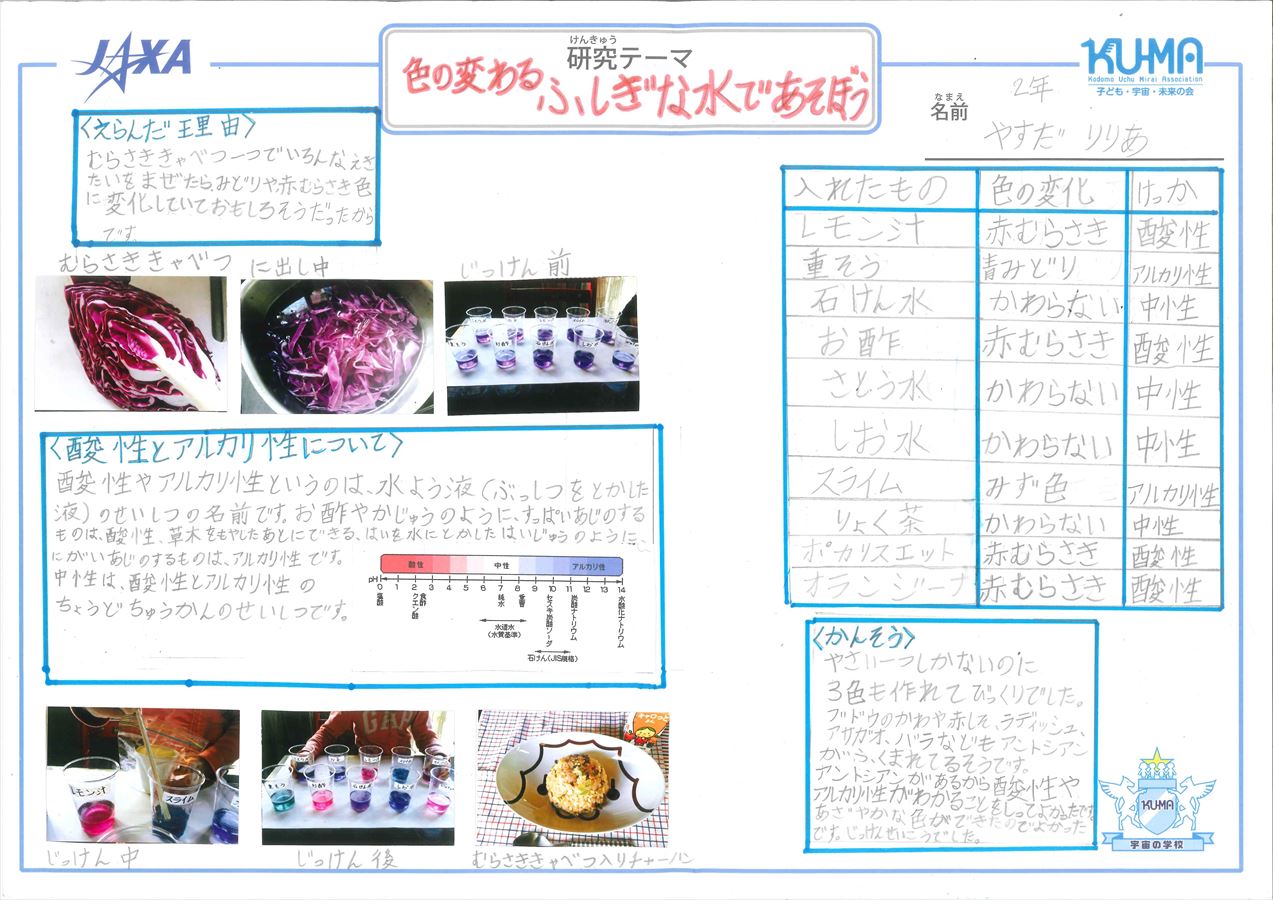 JAXA
けんきゅう
研究テーマ
色の変わる ふしぎな水であそぼう
KU-MA
Kodomo Uchu Mirai Association
子ども・宇宙・未来の会
なまえ
名前
2年
やすだ りりあ
〈えらんだ理由〉
むらさききゃべつ一つでいろんなえき
たいをまぜたら、みどりや、赤むらさき色
に変化していておもしろそうだったから
です。
むらさききゃべつ
に出し中
じっけん前
〈酸性とアルカリ性について〉
酸性やアルカリ性というのは、水よう液(ぶっしつをとかした
液)のせいしつの名前です。お酢やかじゅうのように、すっぱいあじのする
ものは、酸性、草木をもやしたあとにできる、はいを水にとかしたはいじゅうのように、
にがいあじのするものは、アルカリ性です。
中性は、酸性とアルカリ性の
ちょうどちゅうかんのせいしつです。
酸性 中性 アルカリ性
pH 0 1 2 3 4 5 6 7 8 9 10 11 12 13 14
塩酸
食酢
クエン酸
純水
重曹
セスキ炭酸ソーダ
炭酸ナトリウム
水酸化ナトリウム
水道水
(水質基準)
石けん(JIS規格)
レモン汁
スライム
じっけん中
じっけん後
むらさききゃべつ入りチャーハン
入れたもの 色の変化 けっか
レモン汁 赤むらさき 酸性
重そう 青みどり アルカリ性
石けん水 かわらない 中性
お酢 赤むらさき 酸性
さとう水 かわらない 中性
しお水 かわらない 中性
スライム みず色 アルカリ性
りょく茶 かわらない 中性
ポカリスエット 赤むらさき 酸性
オランジーナ 赤むらさき 酸性
〈かんそう〉
やさい一つしかないのに
3色も作れてびっくりでした。
ブドウのかわや赤しそ、ラディッシュ、
アサガオ、バラなどもアントシアン
がふくまれてるそうです。
アントシアンがあるから酸性や
アルカリ性がわかることをしってよかったです。
あざやかな色ができたりでよかった
です。じっけんせいこうでした。
KU-MA
宇宙の学校